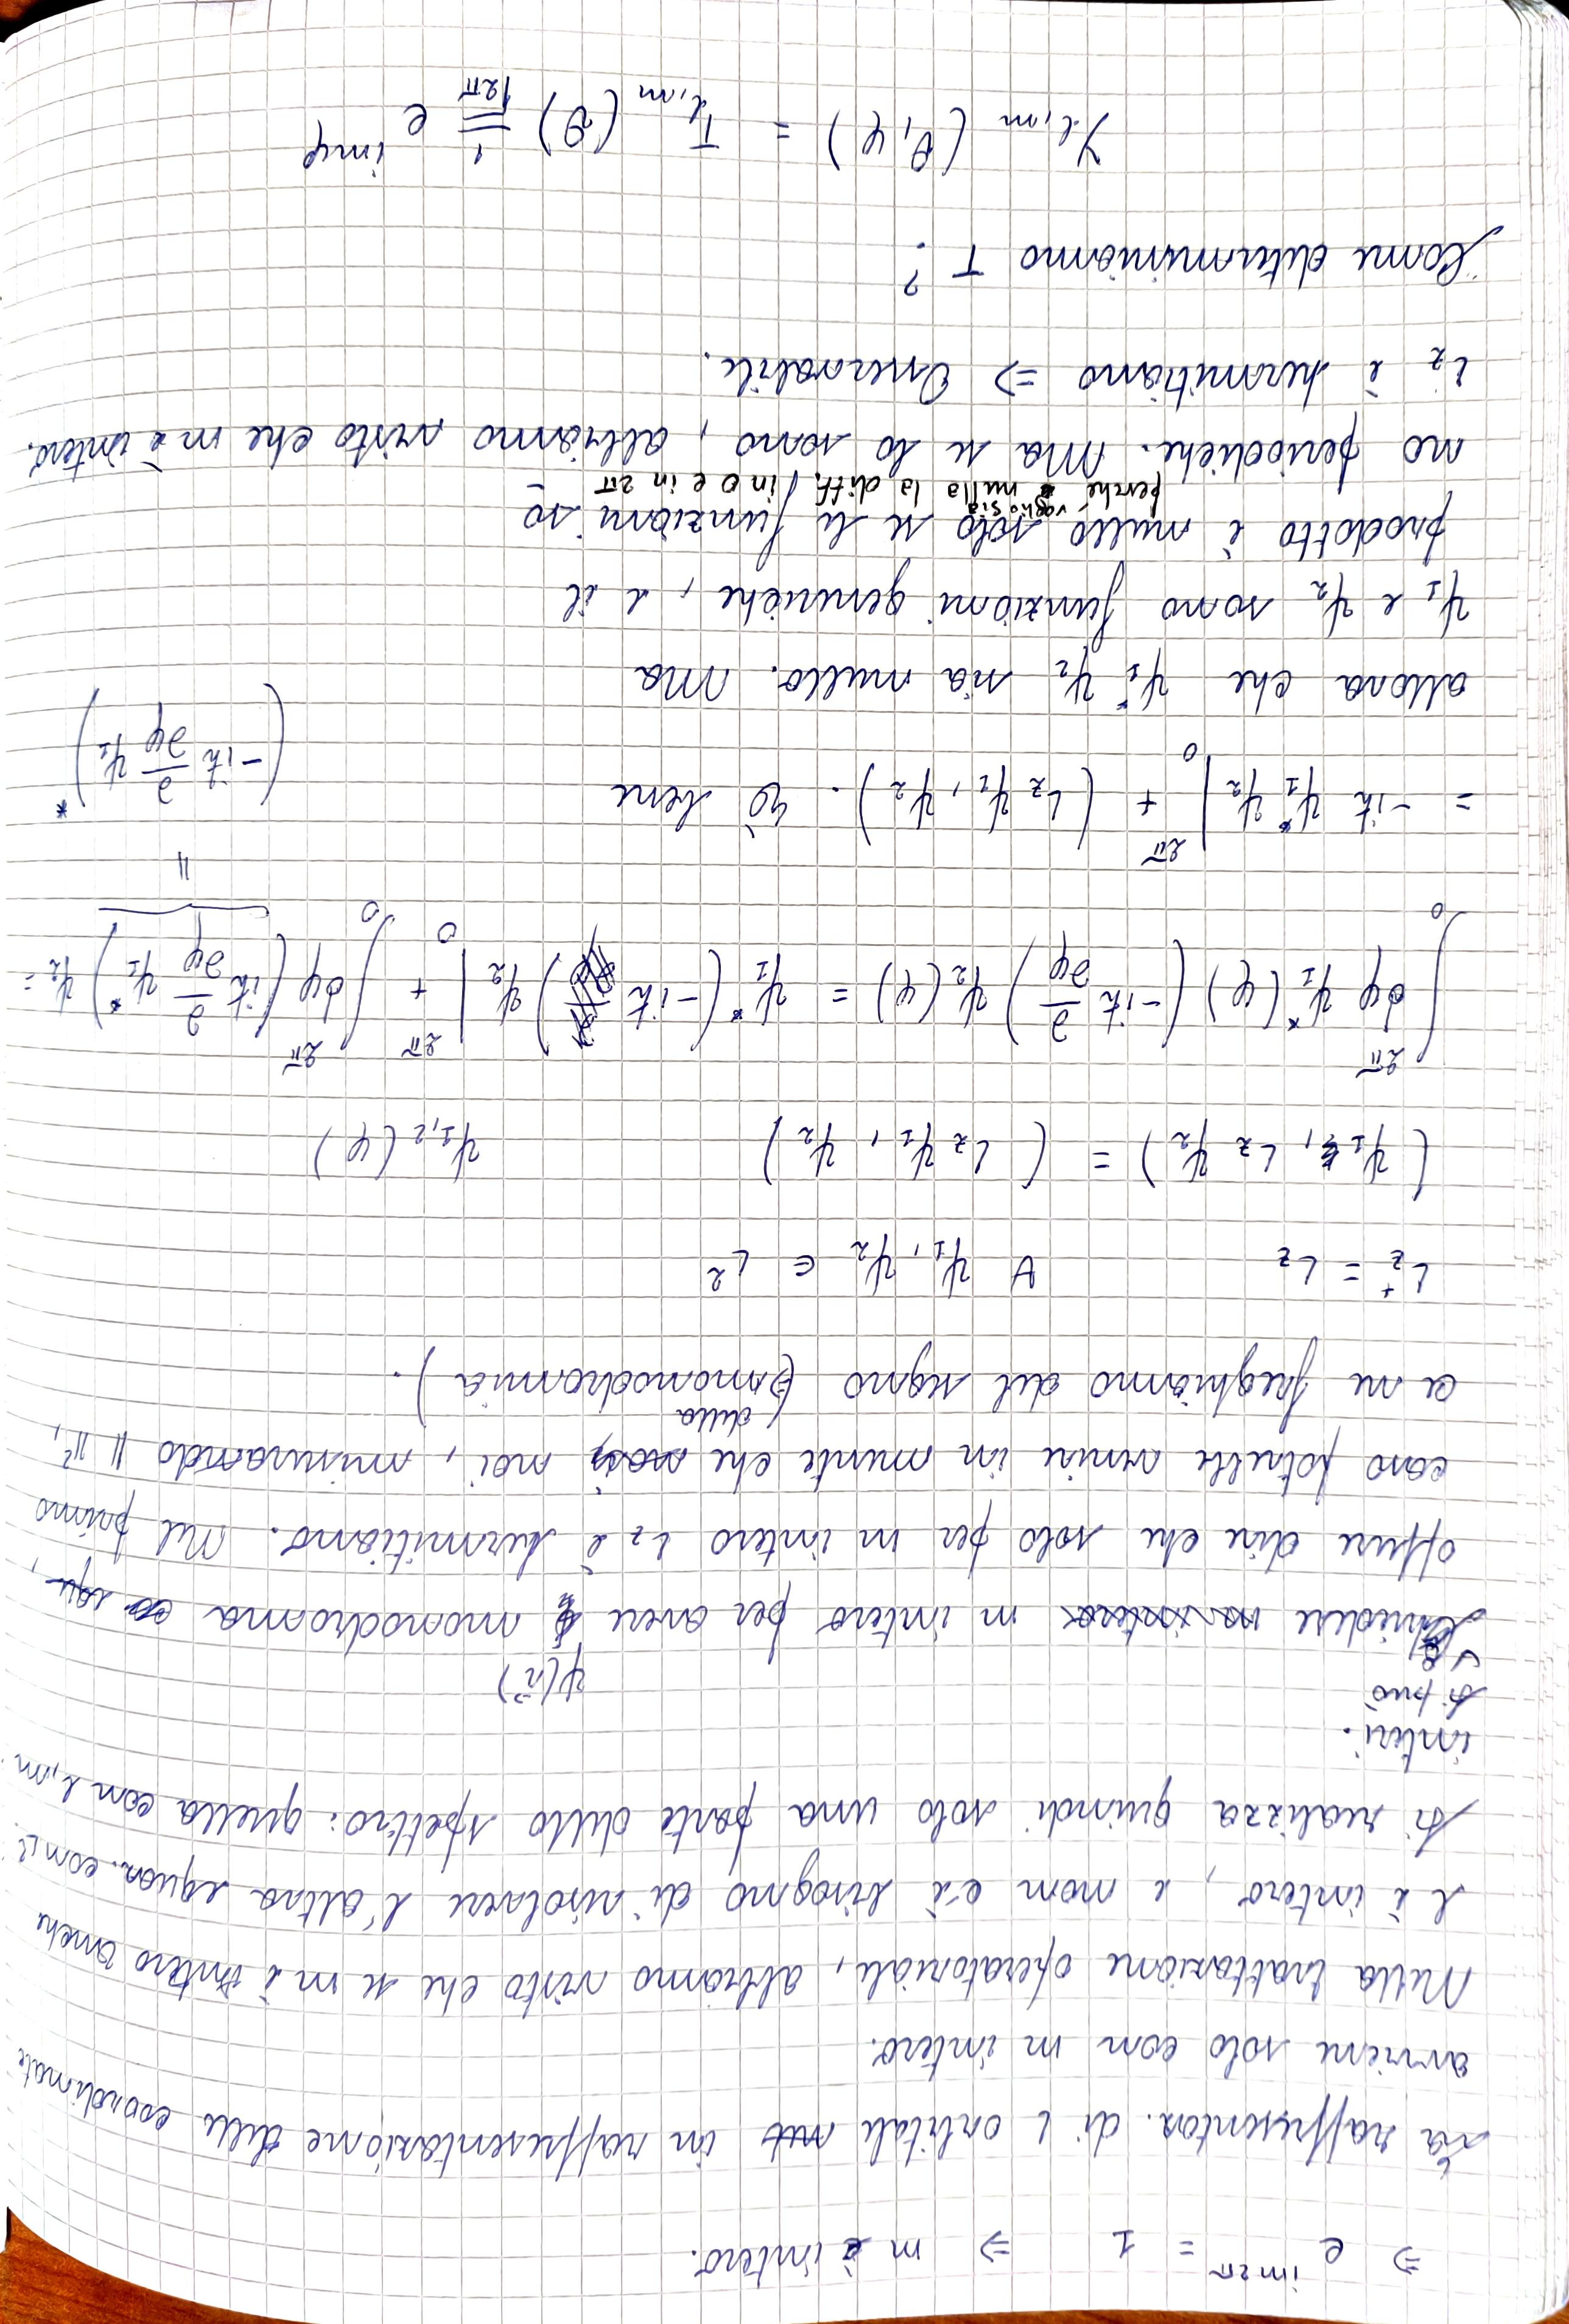 ⇒ e^{im2π} = 1 ⇒ m è intero.
La rappresentaz. di L orbitale in rappresentazione delle coordinate
avviene solo con m intero.
Nella trattazione operatoriale, abbiamo visto che se m è intero anche
l è intero, e non c'è bisogno di risolvere l'altra equaz. con L².
Si realizza quindi solo una parte dello spettro: quella con l, m
interi.
Si può
ψ(r⃗)
chiedere m intero per avere monodroma
oppure dire che solo per m intero L_z è hermitiano. Nel primo
caso potrebbe venire in mente che noi, misurando | |²,
ce ne freghiamo del segno (della monodromia).
L_z^+ = L_z ∀ ψ_1, ψ_2 ∈ L²
(ψ_1, L_z ψ_2) = (L_z ψ_1, ψ_2) ψ_{1,2}(φ)
∫_0^{2π} dφ ψ_1^*(φ) (-iħ ∂/∂φ) ψ_2(φ) = ψ_1^* (-iħ) ψ_2 |_0^{2π} + ∫_0^{2π} dφ (iħ ∂/∂φ ψ_1^*) ψ_2 =
||
= -iħ ψ_1^* ψ_2 |_0^{2π} + (L_z ψ_1, ψ_2). bene
(-iħ ∂/∂φ ψ_1)^*
allora che ψ_1^* ψ_2 sia nullo. Ma
ψ_1 e ψ_2 sono funzioni generiche, e il
prodotto è nullo solo se le funzioni so
perché voglio sia nulla la diff. in 0 e in 2π
no periodiche. Ma se lo sono, abbiamo visto che m è intero.
L_z è hermitiano ⇒ Osservabile.
Come determiniamo T?
Y_{l,m} (θ,φ) = T_{l,m} (θ) 1/√2π e^{imφ}